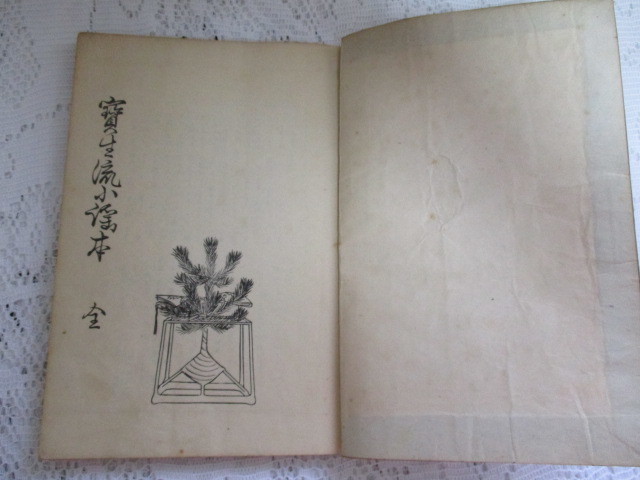 寶生流小謡本 全